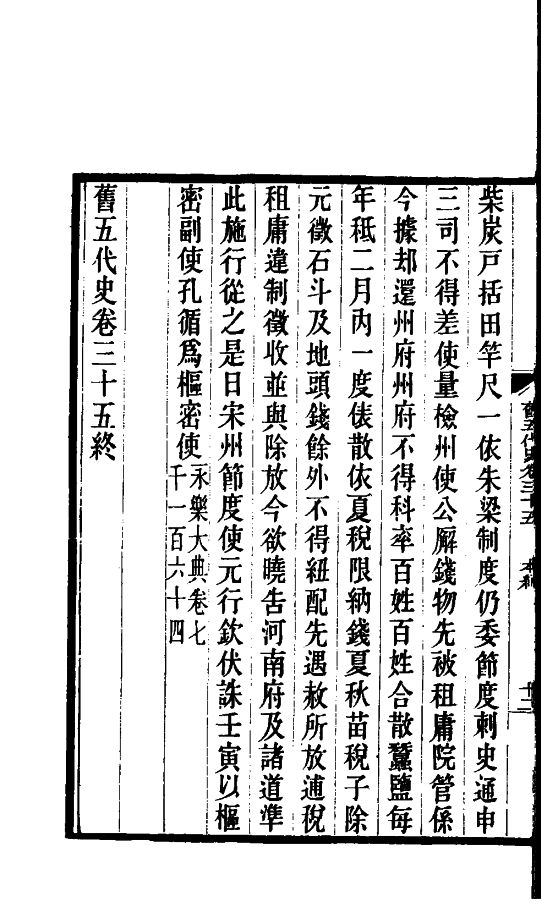 柴炭戸括田竿尺一依朱梁制度仍委節度刺史通申
三司不得差使量檢州使公廨錢物先被租庸院管係
今據却還州府州府不得科率百姓百姓合散蠶鹽每
年秪二月內一度俵散依夏稅限納錢夏秋苗稅子除
元徵石斗及地頭錢餘外不得紐配先遇赦所放逋稅
租庸違制徵收並與除放今欲曉告河南府及諸道準
此施行從之是日宋州節度使元行欽伏誅壬寅以樞
密副使孔循爲樞密使
永樂大典卷七
千一百六十四
舊五代史卷三十五終
舊五代史卷三十五 本紀 十二